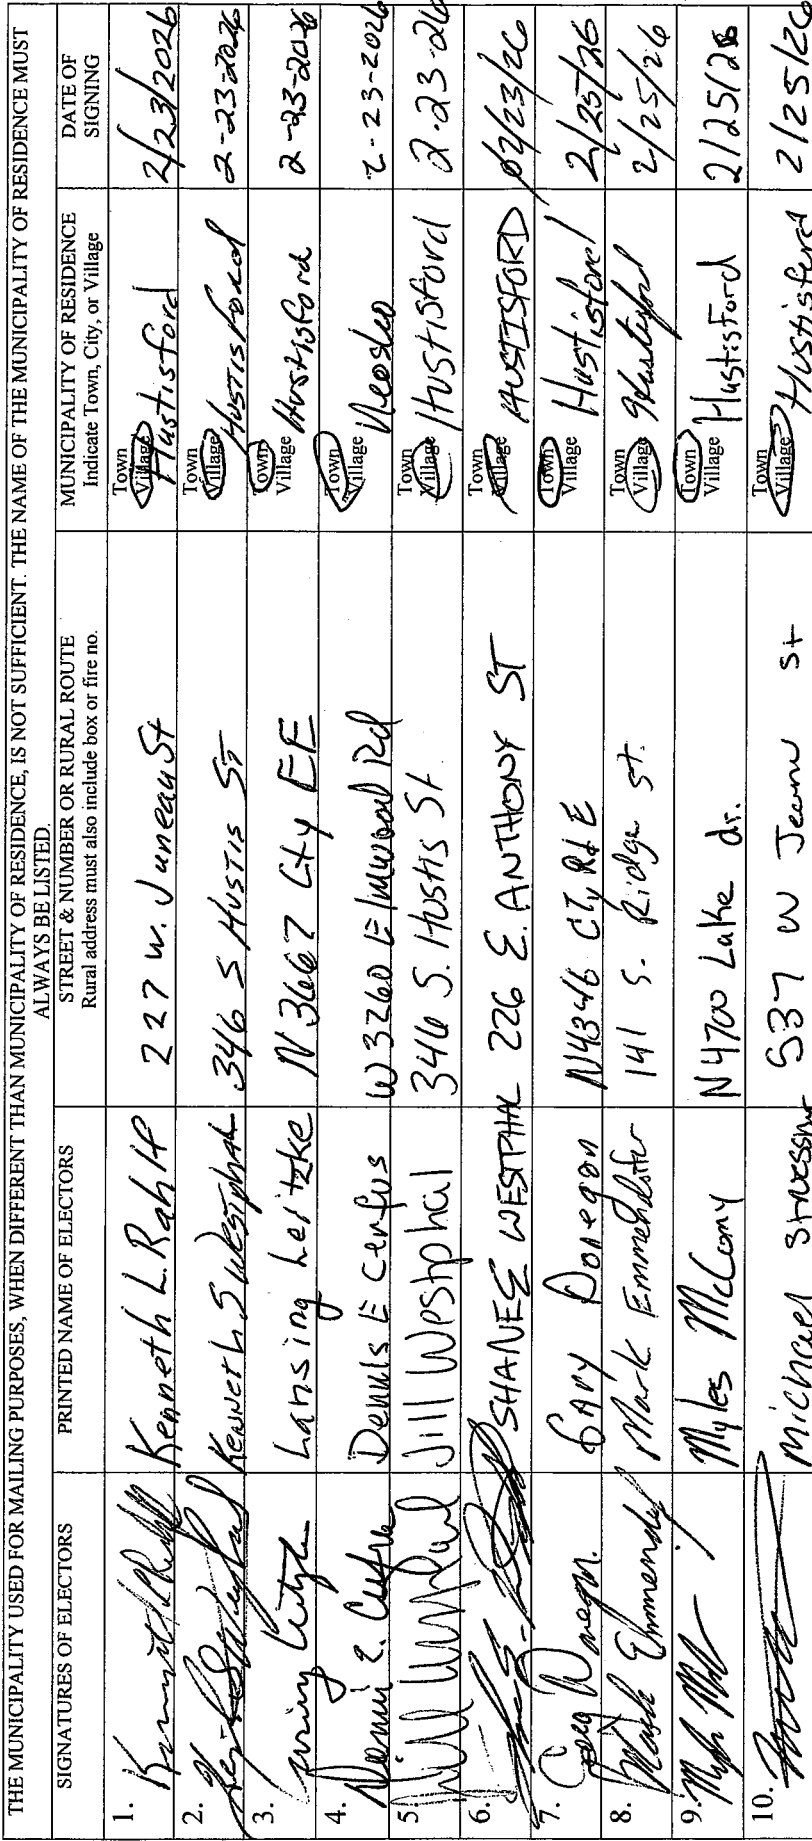 THE MUNICIPALITY USED FOR MAILING PURPOSES, WHEN DIFFERENT THAN MUNICIPALITY OF RESIDENCE, IS NOT SUFFICIENT. THE NAME OF THE MUNICIPALITY OF RESIDENCE MUST
ALWAYS BE LISTED.
SIGNATURES OF ELECTORS PRINTED NAME OF ELECTORS STREET & NUMBER OR RURAL ROUTE MUNICIPALITY OF RESIDENCE DATE OF SIGNING
Rural address must also include box or fire no. Indicate Town, City, or Village
1. Kenneth L. Rahlf 227 W. Juneau St Town Village Hustisford 2/23/2026
2. Kenneth S Westphal 346 S Hustis ST Town Village Hustisford 2-23-2026
3. Lansing Leitzke N3667 Cty EE Town Village Hustisford 2-23-2026
4. Dennis E. Dennis E Cerfus W3260 Elmwood Rd Town Village Neosho 2-23-2026
5. Jill Westphal Jill Westphal 346 S. Hustis St. Town Village Hustisford 2-23-26
6. SHANE WESTPHAL 226 E. ANTHONY ST Town Village HUSTISFORD 02/23/26
7. Gary Donegan. Gary Donegan N4346 CTY Rd E Town Village Hustisford 2/25/26
8. Mark Mark 141 S. Ridge St. Town Village Hustisford 2/25/26
9. Myles McCony N4700 Lake dr. Town Village Hustisford 2/25/26
10. Michael 537 W Jeann St Town Village Hustisford 2/25/26